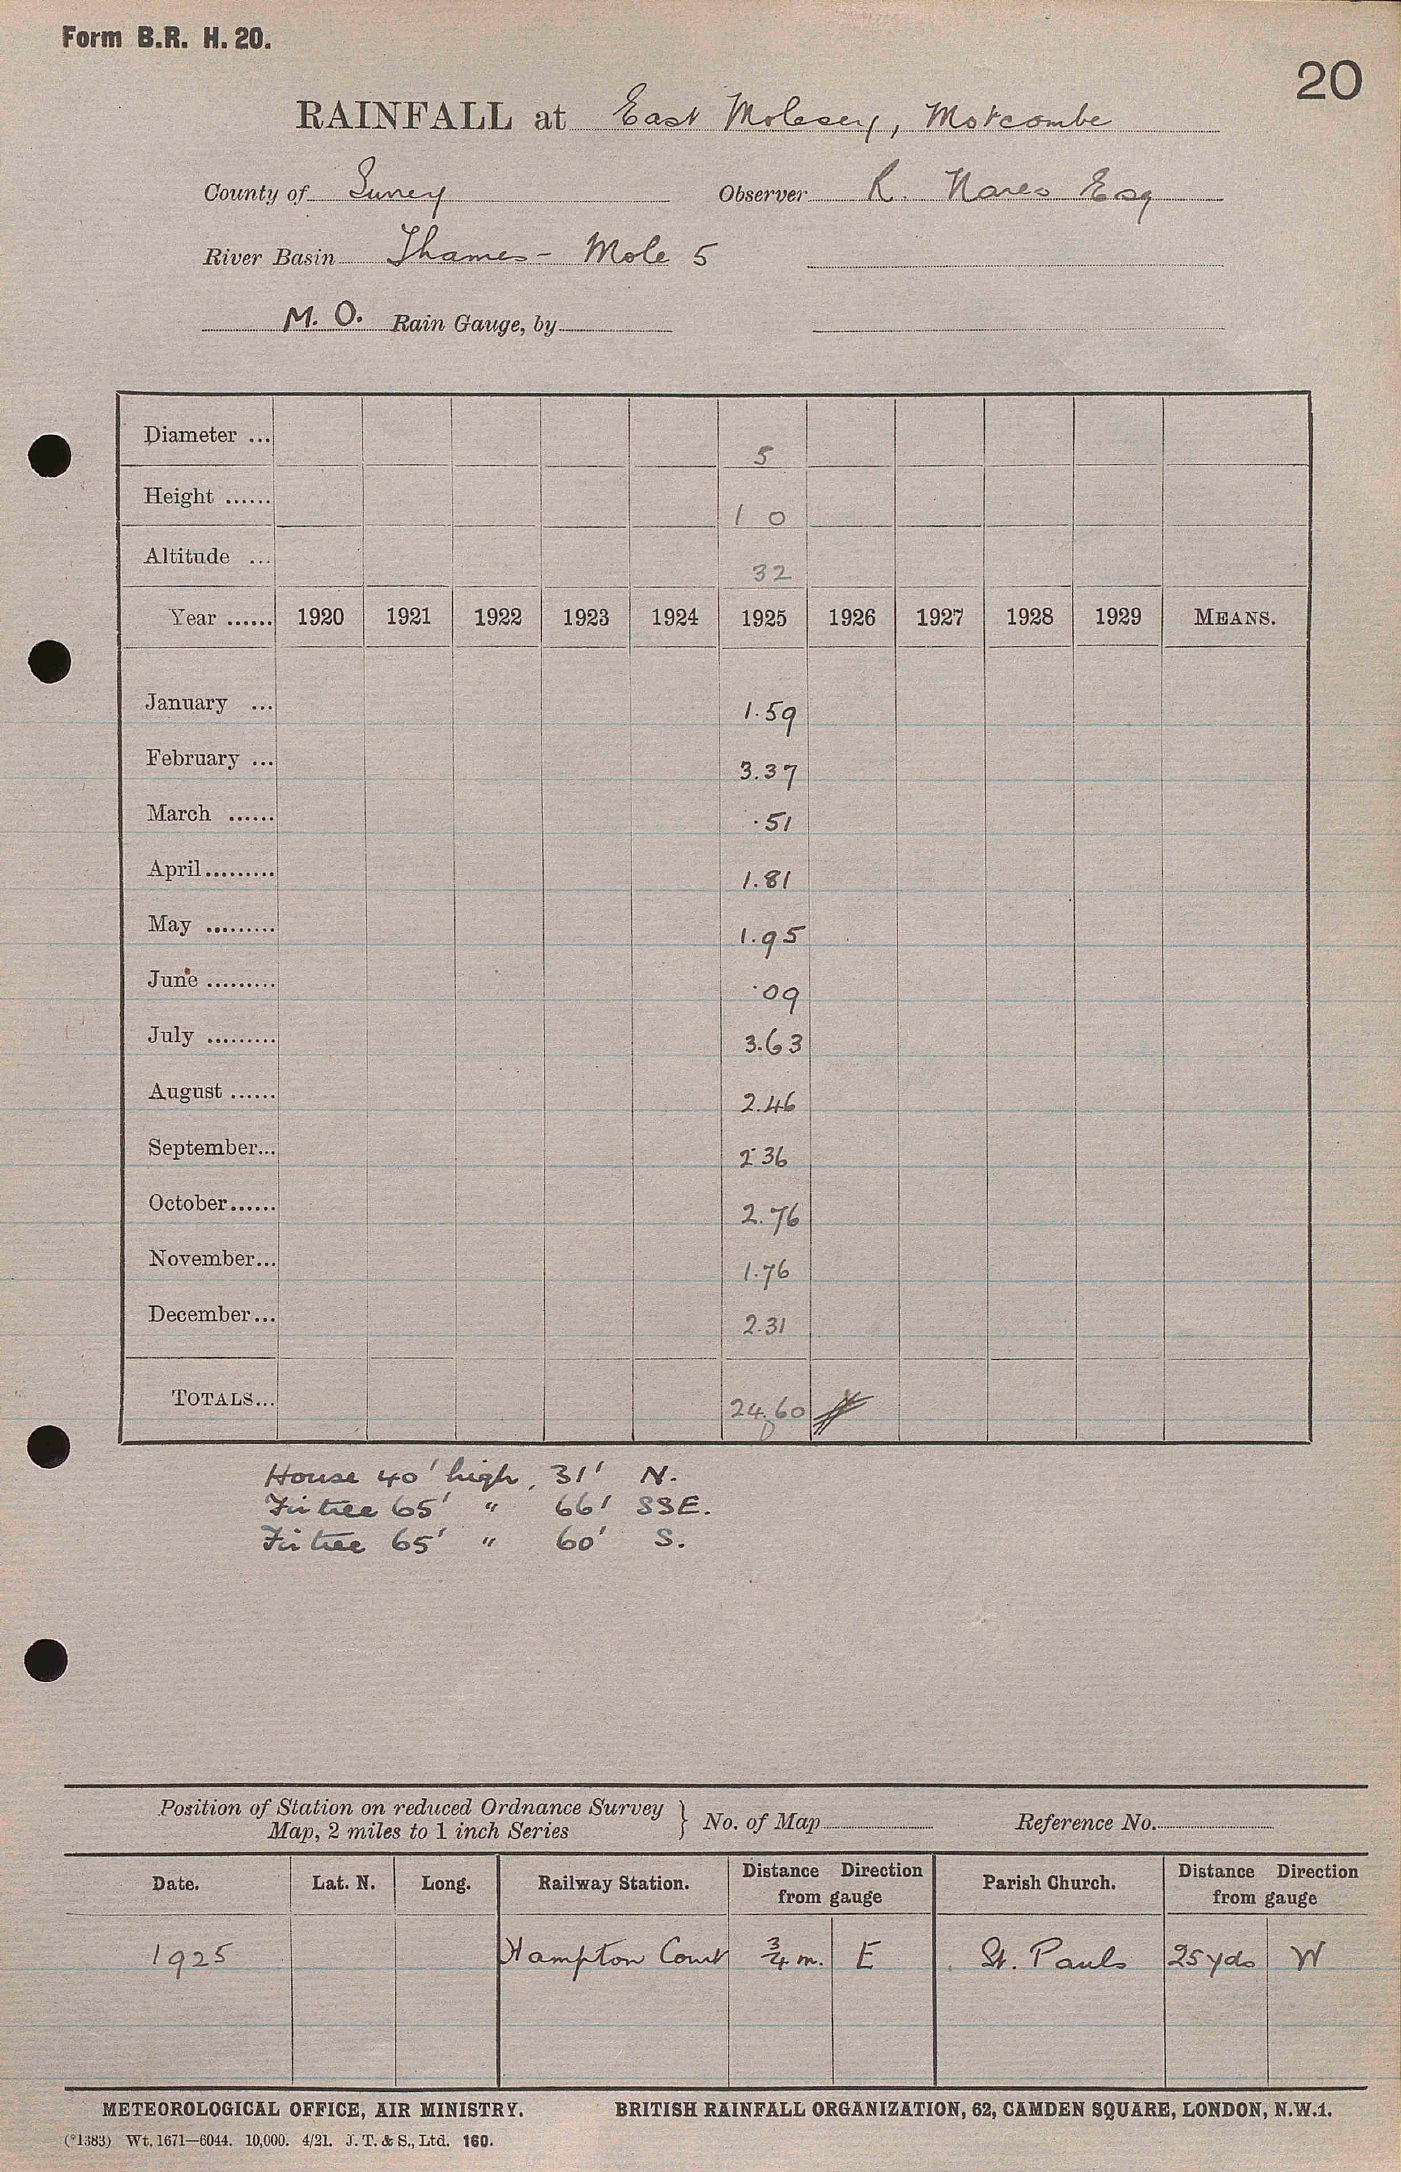 Form B.R. H. 20.
20
RAINFALL at East Molesey, Motcombe
County of Surrey Observer R. Nares Esq
River Basin Thames - Mole 5
M. O. Rain Gauge, by
Diameter ... 5
Height ...... 1 0
Altitude ... 32
Year ...... 1920 1921 1922 1923 1924 1925 1926 1927 1928 1929 MEANS.
January ... 1.59
February ... 3.37
March ...... .51
April ......... 1.81
May ......... 1.95
June ......... .09
July ......... 3.63
August ...... 2.46
September... 2.36
October...... 2.76
November... 1.76
December... 2.31
TOTALS... 24.60
House 40' high, 31' N.
Fir tree 65' " 66' SSE.
Fir tree 65' " 60' S.
Position of Station on reduced Ordnance Survey
Map, 2 miles to 1 inch Series } No. of Map Reference No.
Date. Lat. N. Long. Railway Station. Distance Direction from gauge Parish Church. Distance Direction from gauge
1925 Hampton Court ¾ m. E St. Pauls 25 yds W
METEOROLOGICAL OFFICE, AIR MINISTRY. BRITISH RAINFALL ORGANIZATION, 62, CAMDEN SQUARE, LONDON, N.W.1.
(*1383) Wt. 1671—6044. 10,000. 4/21. J. T. & S., Ltd. 160.